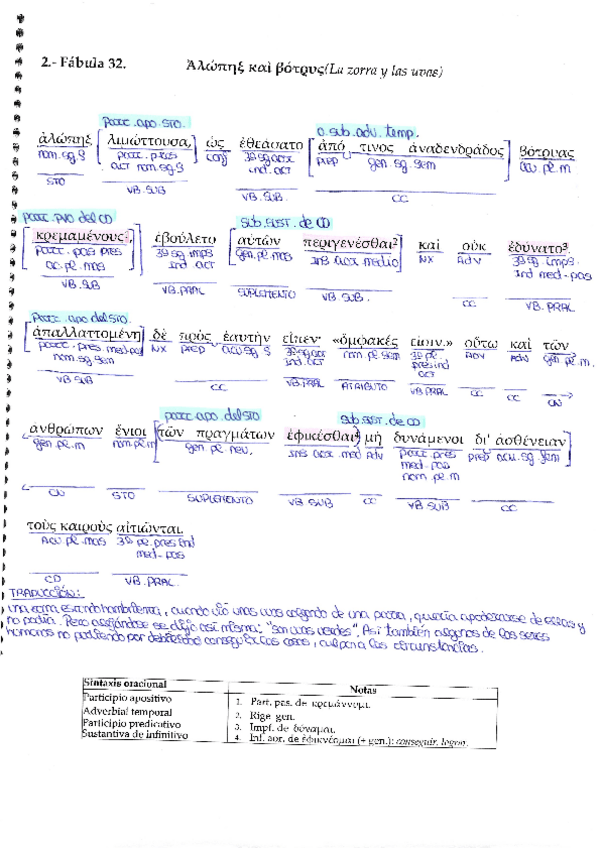 2.- Fábula 32. Ἀλώπηξ καὶ βότρυς (La zorra y las uvas)
part. apo. STO. o. sub. adv. temp.
ἀλώπηξ [λιμώττουσα,] ὡς ἐθεάσατο [ἀπό τινος ἀναδενδράδος] βότρυας
nom. sg. f part. pres conj 3ª sg aor PREP gen. sg. fem acu. pl. m
act nom. sg. f ind. act
STO VB. SUB VB. SUB. CC
part. PVO del CD Sub. SUST. de CD
[κρεμαμένους¹,] ἐβούλετο [αὐτῶν περιγενέσθαι²] καὶ οὐκ ἐδύνατο³.
part. pas pres 3ª sg imps gen. pl. mas Inf. aor. medio NX Adv 3ª sg. imps.
ac. pl. mas Ind act Ind med-pas
VB. SUB VB. PRAL SUPLEMENTO VB SUB. CC VB. PRAL
Part. apo del STO.
[ἀπαλλαττομένη] δὲ πρὸς ἑαυτὴν εἶπεν· «ὄμφακές εἰσιν.» οὕτω καὶ τῶν
part. pres. med-pas NX PREP acu sg f 3ª sg aor nom. pl. fem 3ª pl. ADV Adv gen pl. m
nom. sg. fem ind. act pres ind act
VB SUB CC VB. PRAL ATRIBUTO VB. PRAL CC CC CN
part. apo. del STO Sub. SUST. de CD
ἀνθρώπων ἔνιοι [τῶν πραγμάτων ἐφικέσθαι⁴ μὴ δυνάμενοι δι' ἀσθένειαν]
gen. pl. m nom. pl m gen. pl. neu. inf. aor. med Adv part. pres PREP acu. sg. fem
med-pas
nom. pl. m
CN STO SUPLEMENTO VB SUB CC VB SUB CC
τοὺς καιροὺς αἰτιῶνται.
Acu pl. mas 3ª pl. pres ind
med-pas
CD VB. PRAL.
TRADUCCIÓN:
una zorra estando hambrienta, cuando vió unas uvas colgando de una parra, quería apoderarse de ellas y
no podía. Pero alejándose se dijo así misma: "son uvas verdes". Así también algunos de los seres
humanos no pudiendo por debilidad conseguir las cosas, culpan a las circunstancias.
Sintaxis oracional Notas
Participio apositivo 1. Part. pas. de κρεμάννυμι.
Adverbial temporal 2. Rige gen.
Participio predicativo 3. Impf. de δύναμαι.
Sustantiva de infinitivo 4. Inf. aor. de ἐφικνέομαι (+ gen.): conseguir, lograr.